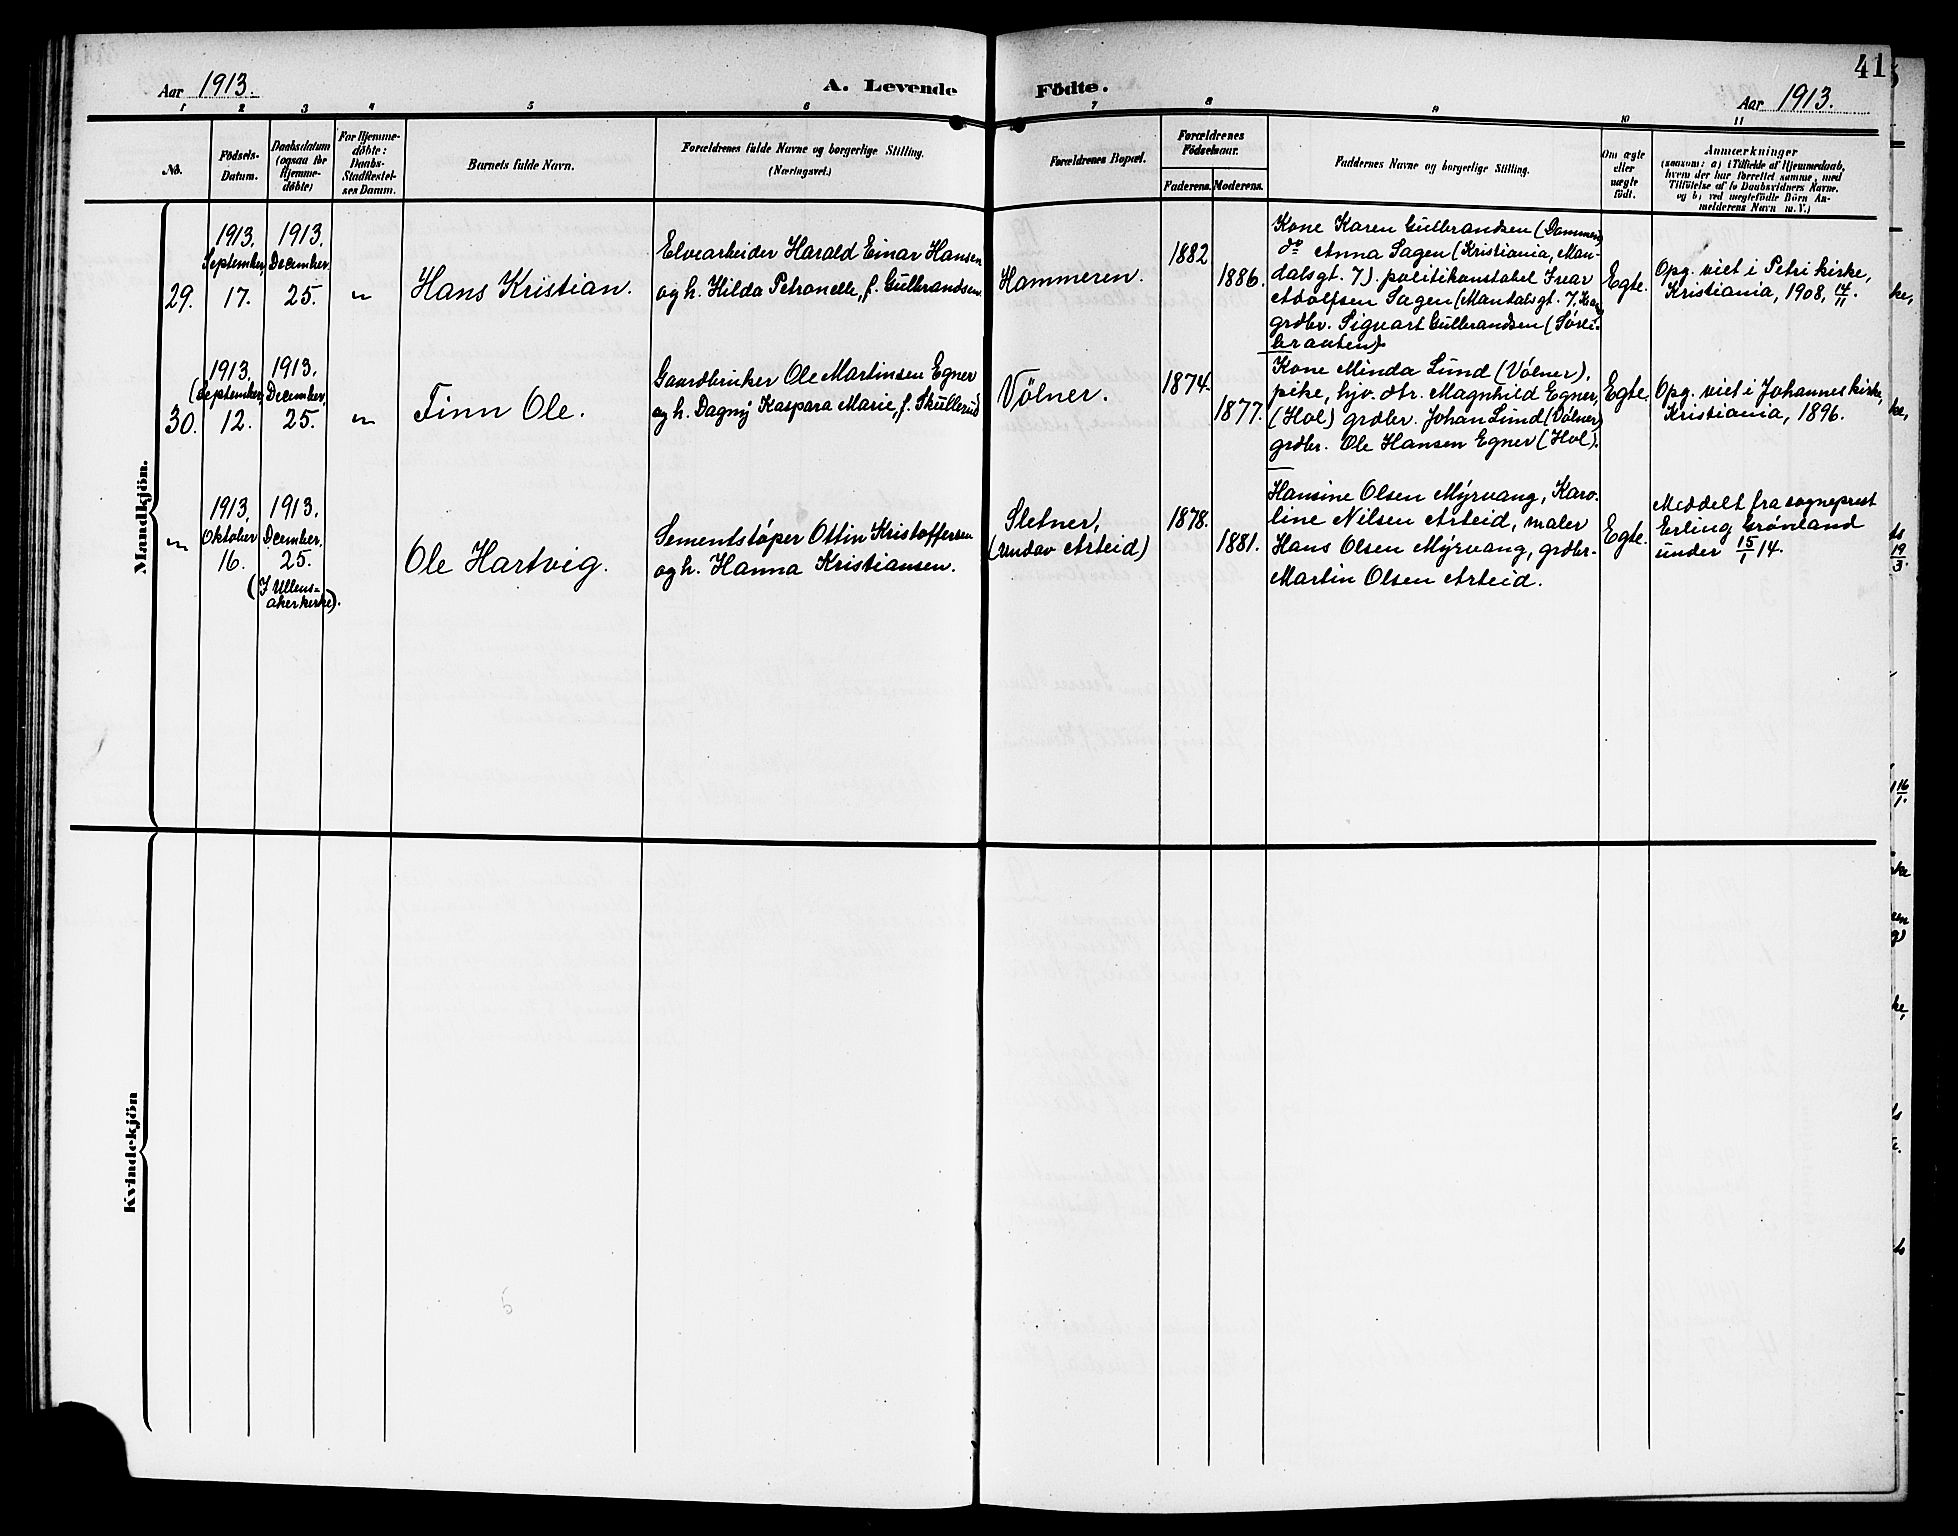 41
Aar 1913.
A. Levende Födte.
Aar 1913.
1 2 3 4 5 6 7 8 9 10 11
No.
Födsels-
Datum.
Daabsdatum
(ogsaa for
Hjemme-
döbte)
For Hjemme-
döbte:
Daabs-
Stadfæstel-
ses Datum.
Barnets fulde Navn.
Forældrenes fulde Navne og borgerlige Stilling.
(Næringsvei.)
Forældrenes Bopæl.
Forældrenes
Födselsaar.
Faderens.
Moderens.
Faddernes Navne og borgerlige Stilling.
Om ægte
eller
uægte
født.
Anmærkninger
(saasom: a) i Tilfælde af Hjemmedaab,
hvem der har forrettet samme, med
Tilføielse af to Daabsvidners Navne.
og b) ved uægtefødte Börn An-
melderens Navn m. V.)
Mandkjön.
29.
1913.
September
17.
1913.
December
25.
"
Hans Kristian.
Elvearbeider Harald Einar Hansen
og h. Hilda Petronelle, f. Gulbrandsen.
Hammeren.
1882
1886.
Kone Karen Gulbrandsen
do Anna Sagen (Kristiania, Man-
dalsgt. 7). politikonstabel Ivar
Adolfsen Sagen (Mandalsgt. 7,
grdbr. Sigvart Gulbrandsen (Søre
braaten).
Egte.
Opg. viet i Petri kirke,
Kristiania, 1908, 14/11.
30.
1913.
September,
12.
1913.
December,
25.
"
Finn Ole.
Gaardbruker Ole Martinsen Egner
og h. Dagny Kaspara Marie, f. Skullerud
Völner.
1874.
1877.
Kone Minda Lund (Vølner).
pike, hjv. dtr. Magnhild Egner,
(Hol) grdbr. Johan Lund (Vølner)
grdbr. Ole Hansen Egner (Hol).
Egte.
Opg. viet i Johannes kirke,
Kristiania, 1896.
"
1913.
Oktober
16.
1913.
December,
25.
(I Ullens-
aker kirke).
Ole Hartvig.
Sementstøper Ottin Kristoffersen
og h. Hanna Kristiansen.
Sletner,
(under Arteid)
1878.
1881.
Hansine Olsen Myrvang, Karo-
line Nilsen Arteid, maler
Hans Olsen Myrvang, grdbr.
Martin Olsen Arteid.
Egte.
Meddelt fra sogneprest
Erling Grønland
under 15/1 14.
Kvindekjön